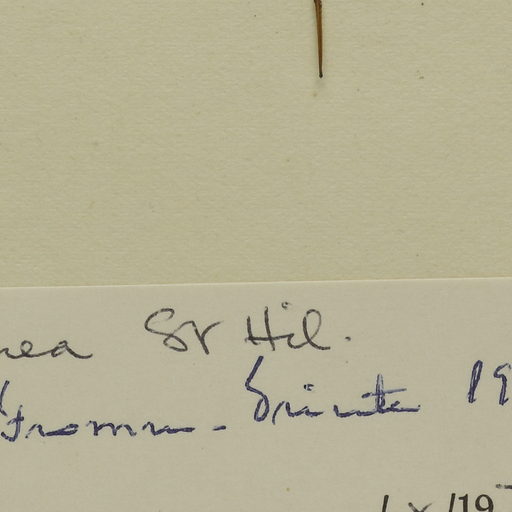 nea St Hil.
Fromm - Trinta 19
/19